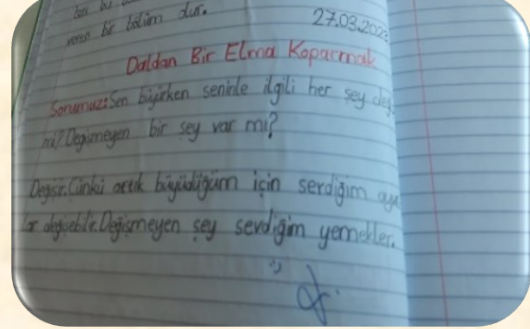 bir bölüm dur.
27.03.202
Daldan Bir Elma Koparmak
Sorumuz:Sen büyürken seninle ilgili her şey değ
mi?Değişmeyen bir şey var mı?
Değişir.Çünkü artık büyüdüğüm için serdiğim oyu
lar değişebilir.Değişmeyen şey sevdiğim yemekler.